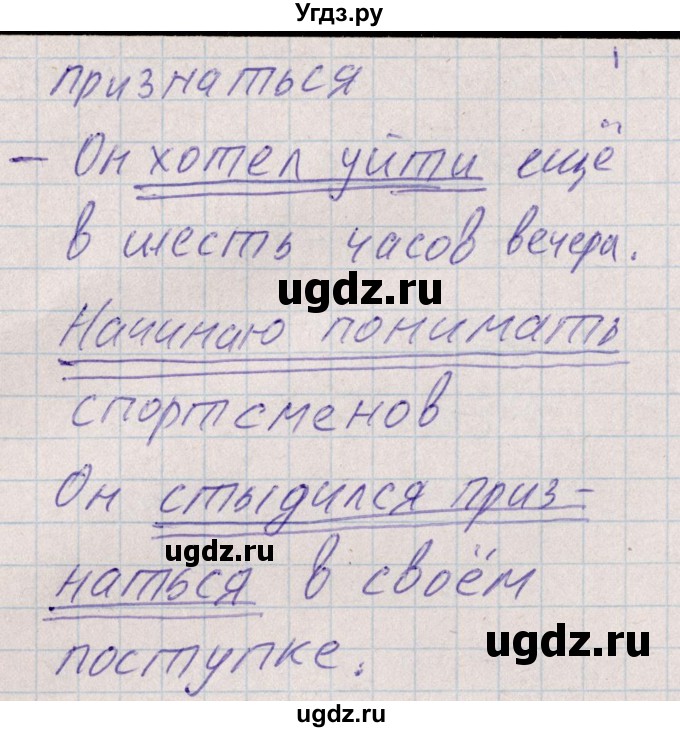 Угдз.ру
признаться
– Он хотел уйти ещё
в шесть часов вечера.
ugdz.ru
Начинаю понимать
спортсменов
Он стыдился приз-
ugdz.ru
наться в своём
ugdz.ru
поступке.
ugdz.ru